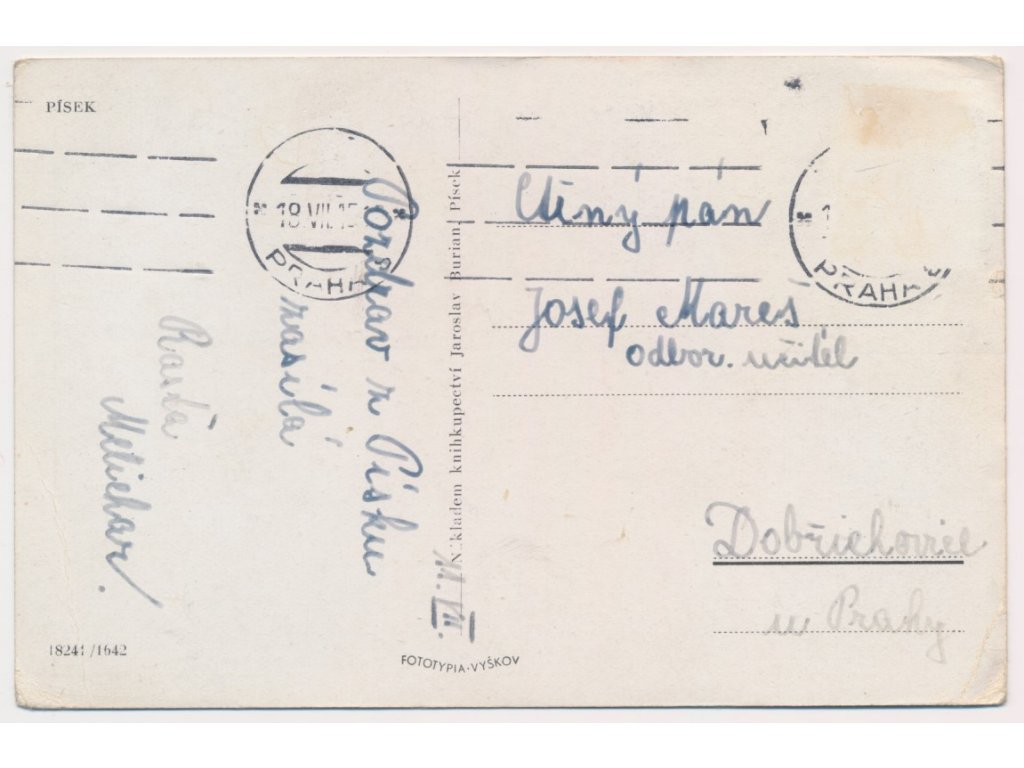 PÍSEK
18.VII.15
PRAHA
Pozdrav z Písku
zasílá
Randa
Melichar.
18241/1642
Nákladem knihkupectví Jaroslav Burian, Písek
FOTOTYPIA-VYŠKOV
VII.
PRAHA
Ctěný pán
Josef Mareš
odbor. učitel
Dobřichovice
u Prahy